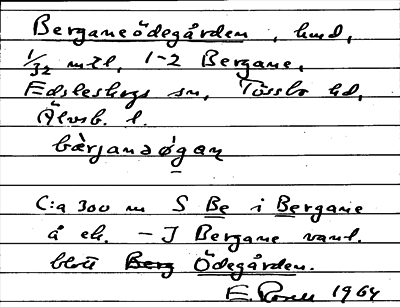 Bergane ödegården, hmd,
1/32 mtl, 1-2 Bergane,
Edsleskogs sn, Tössbo hd,
Älvsb. l.
bærjanaøgan
C:a 300 m S Be i Bergane
å ek. – I Bergane vanl.
blott Berg Ödegården.
E. 1964